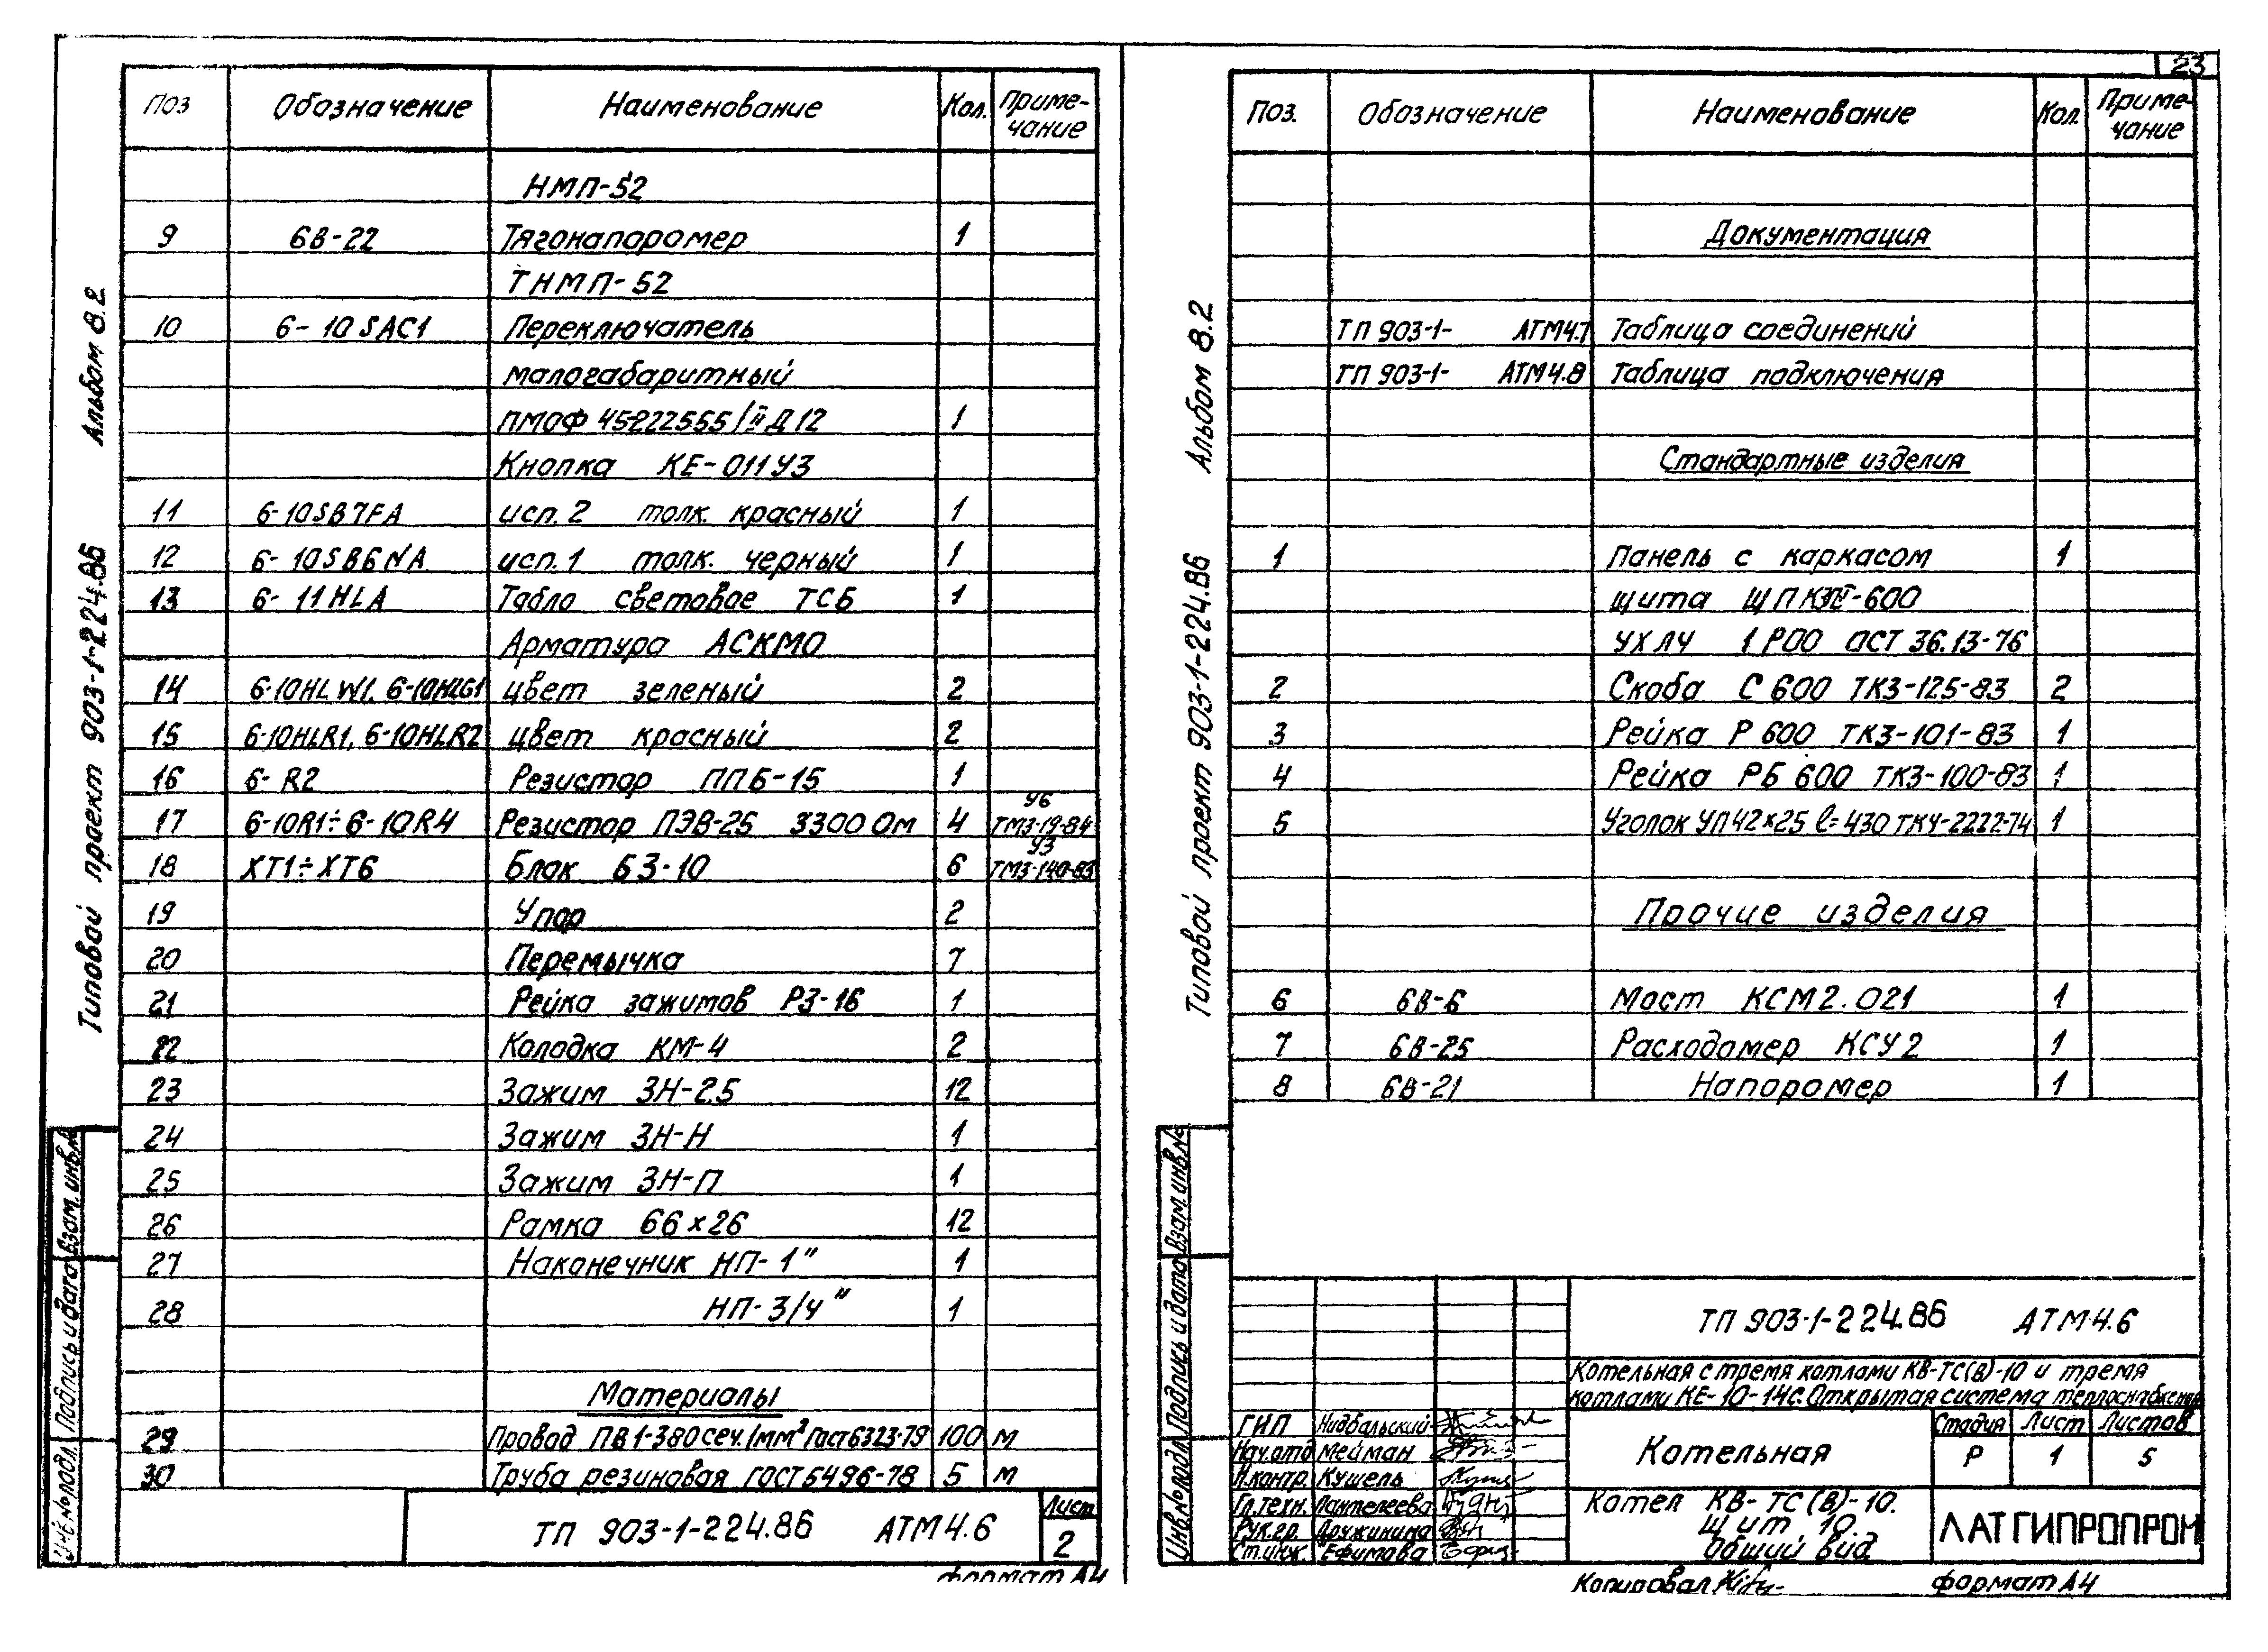 Поз Обозначение Наименование Кол. Приме-
чание
НМП-52
9 6В-22 Тягонапоромер 1
ТНМП-52
10 6-10SAC1 Переключатель
малогабаритный
ПМОФ 45-222555/II Д12 1
Кнопка КЕ-011У3
11 6-10SB7FA исп. 2 толк. красный 1
12 6-10SB6NA исп. 1 толк. черный 1
13 6-11HLA Табло световое ТСБ 1
Арматура АСКМО
14 6-10HLW1, 6-10HLG1 цвет зеленый 2
15 6-10HLR1, 6-10HLR2 цвет красный 2
16 6-R2 Резистор ППБ-15 1
17 6-10R1÷6-10R4 Резистор ПЭВ-25 3300 Ом 4 У6 ТМ3-19-84
18 XT1÷XT6 Блок БЗ-10 6 У3 ТМ3-140-83
19 Упор 2
20 Перемычка 7
21 Рейка зажимов РЗ-16 1
22 Колодка КМ-4 2
23 Зажим ЗН-2.5 12
24 Зажим ЗН-Н 1
25 Зажим ЗН-П 1
26 Рамка 66×26 12
27 Наконечник НП-1" 1
28 НП-3/4" 1
Материалы
29 Провод ПВ1-380 сеч. 1мм² ГОСТ 6323-79 100 м
30 Труба резиновая ГОСТ 5496-78 5 м
ТП 903-1-224.86 АТМ4.6 Лист
2
формат А4
Альбом 8.2
Типовой проект 903-1-224.86
Взам. инв.№
Подпись и дата
Инв.№ подл.
23
Поз. Обозначение Наименование Кол. Приме-
чание
Документация
ТП 903-1- АТМ4.7 Таблица соединений
ТП 903-1- АТМ4.8 Таблица подключения
Стандартные изделия
1 Панель с каркасом 1
щита ЩПК -600
УХЛ4 1Р00 ОСТ 36.13-76
2 Скоба С 600 ТК3-125-83 2
3 Рейка Р 600 ТК3-101-83 1
4 Рейка РБ 600 ТК3-100-83 1
5 Уголок УП 42×25 ℓ=430 ТК4-2222-74 1
Прочие изделия
6 6В-6 Мост КСМ2.021 1
7 6В-25 Расходомер КСУ2 1
8 6В-21 Напоромер 1
Альбом 8.2
Типовой проект 903-1-224.86
Взам. инв.№
Подпись и дата
Инв.№ подл.
ТП 903-1-224.86 АТМ4.6
Котельная с тремя котлами КВ-ТС(В)-10 и тремя
котлами КЕ-10-14с. Открытая система теплоснабжения
ГИП Нидбальский
Нач.отд Мейман
Н.контр. Кушель
Гл.техн. Пантелеева
Рук.гр. Дружинина
Ст.инж. Ефимова
Котельная
Стадия Лист Листов
Р 1 5
Котел КВ-ТС(В)-10.
Щит 10.
Общий вид
ЛАТГИПРОПРОМ
Копировал
формат А4